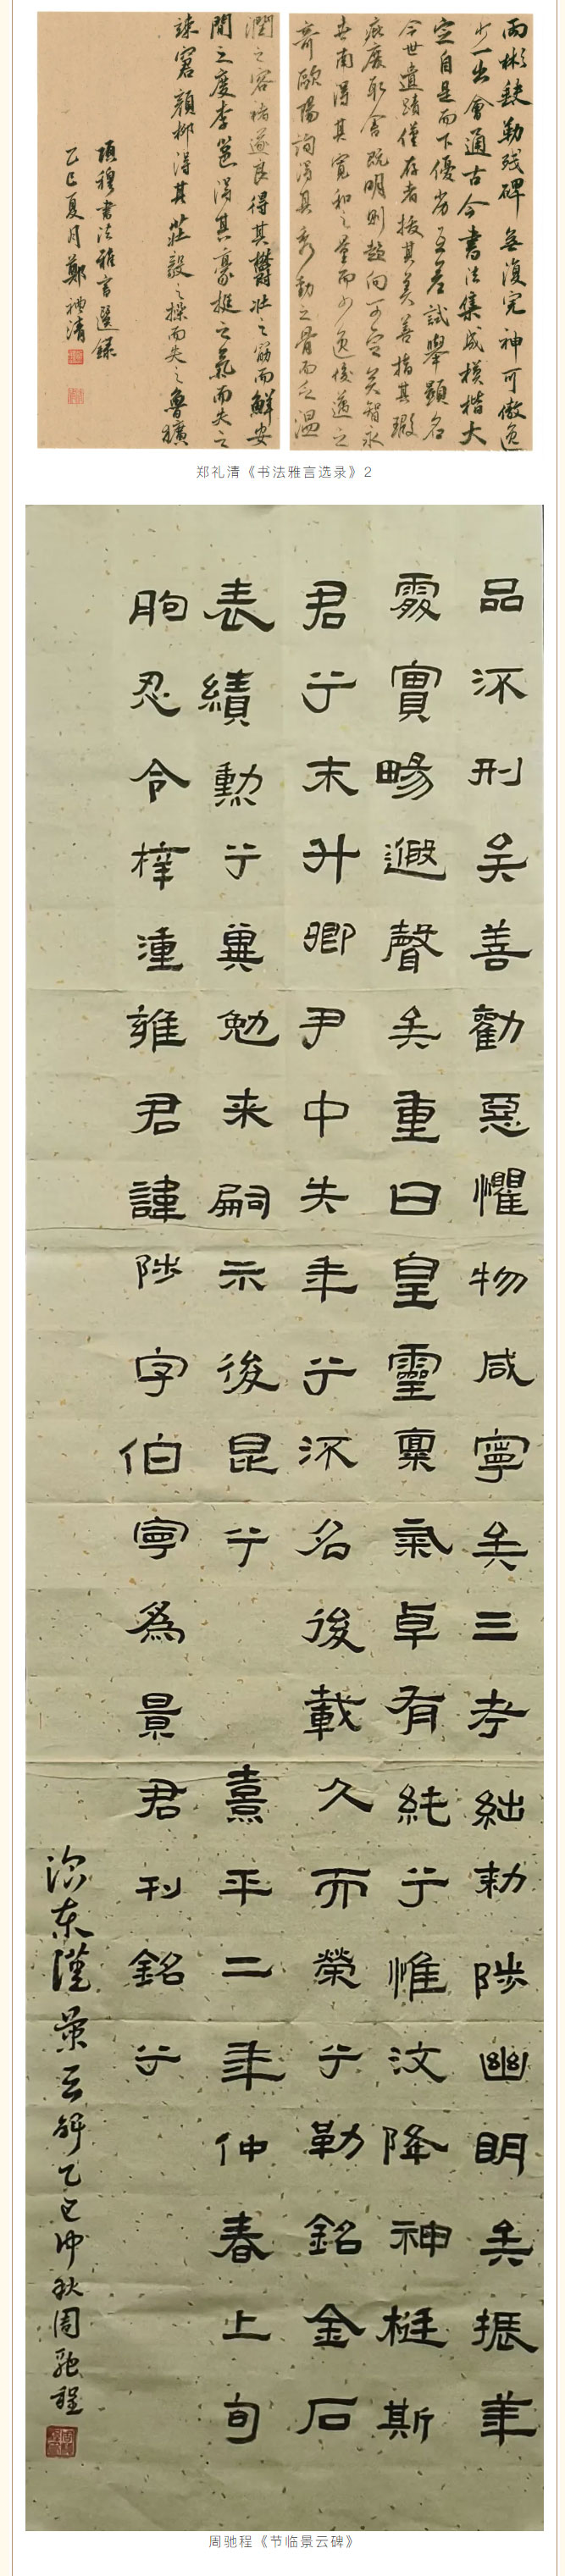 缺勒殘碑無復完神可倣逸
少一出會通古今書法集成模楷大
定自是而下優劣互差試舉顯名
今世遺蹟僅存者拔其美善指其瑕
疵庶取舍既明則趨向可定矣智永
世南得其寬和之量而少逸俊邁之
奇歐陽詢得其秀勁之骨而乏溫
潤之容褚遂良得其鬱壯之筋而鮮安
閒之度李邕得其豪挺之氣而失之
竦窘顏柳得其莊毅之操而失之魯獷
項穆書法雅言選錄
乙巳夏月鄭禮清
郑礼清《书法雅言选录》2
品流刑矣善勸惡懼物咸寧矣三考絀勅陟幽明矣振華
處實暘遐聲矣重曰皇靈稟氣卓有純兮惟汶降神梃斯
君兮末升卿尹中失年兮流名後載久而榮兮勒銘金石
表績勳兮冀勉来嗣示後昆兮熹平二年仲春上旬
朐忍令梓潼雍君諱陟字伯寧為景君刊銘兮
臨東漢景云碑乙巳仲秋周驰程
周驰程《节临景云碑》